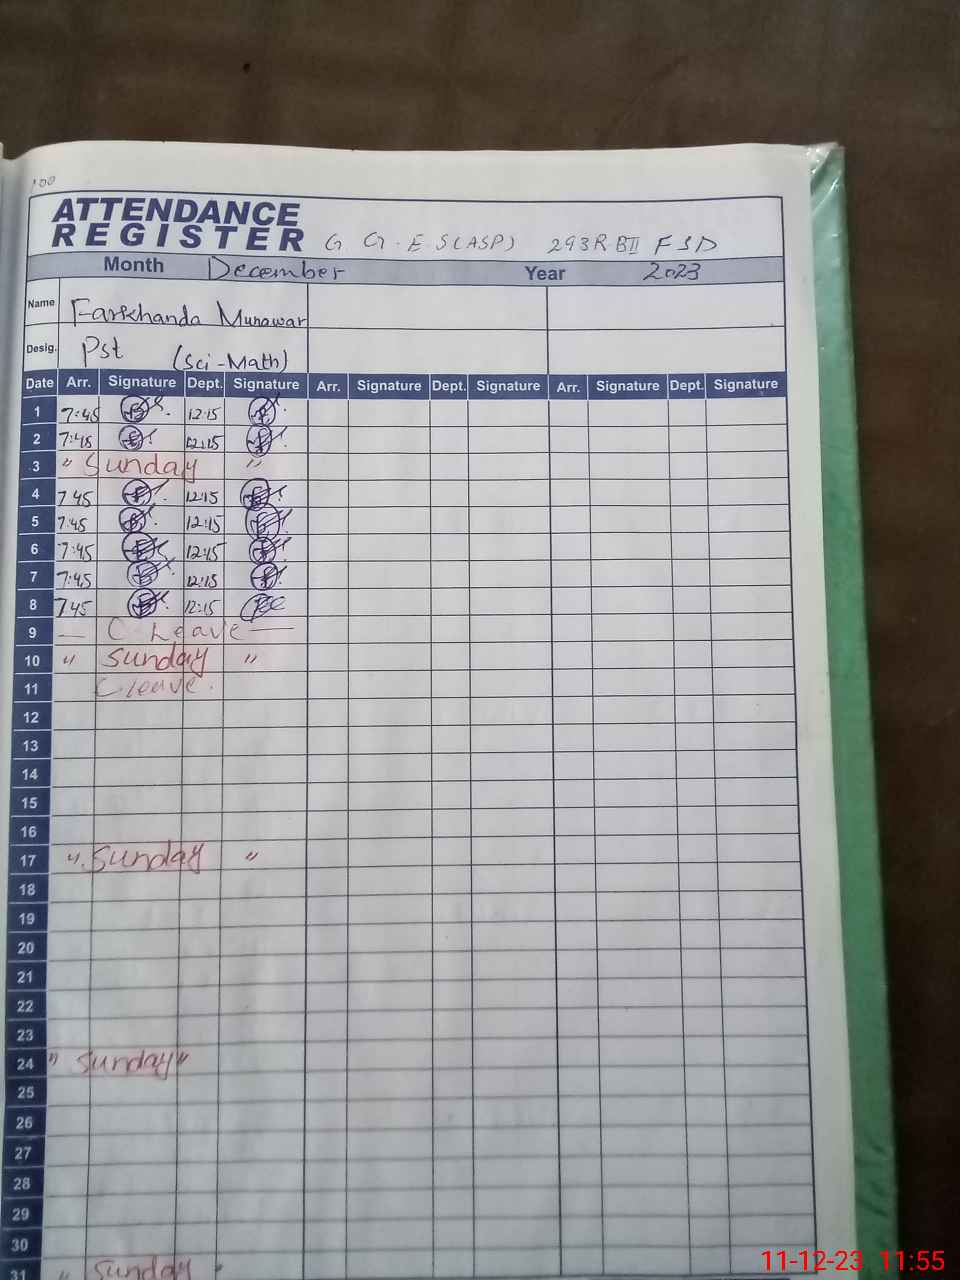 100
ATTENDANCE
REGISTER G. G. E. S(ASP) 293R.BII FSD
Month December Year 2023
Name Farkhanda Munawar
Desig. Pst (Sci-Math)
Date Arr. Signature Dept. Signature Arr. Signature Dept. Signature Arr. Signature Dept. Signature
1 7:45 12:15
2 7:45 12:15
3 " Sunday "
4 7 45 12:15
5 7:45 12:15
6 7:45 12:15
7 7:45 12:15
8 7.45 12:15
9 — C. Leave —
10 " Sunday "
11 C.leave.
12
13
14
15
16
17 " Sunday "
18
19
20
21
22
23
24 " Sunday "
25
26
27
28
29
30
31 " Sunday "
11-12-23 11:55